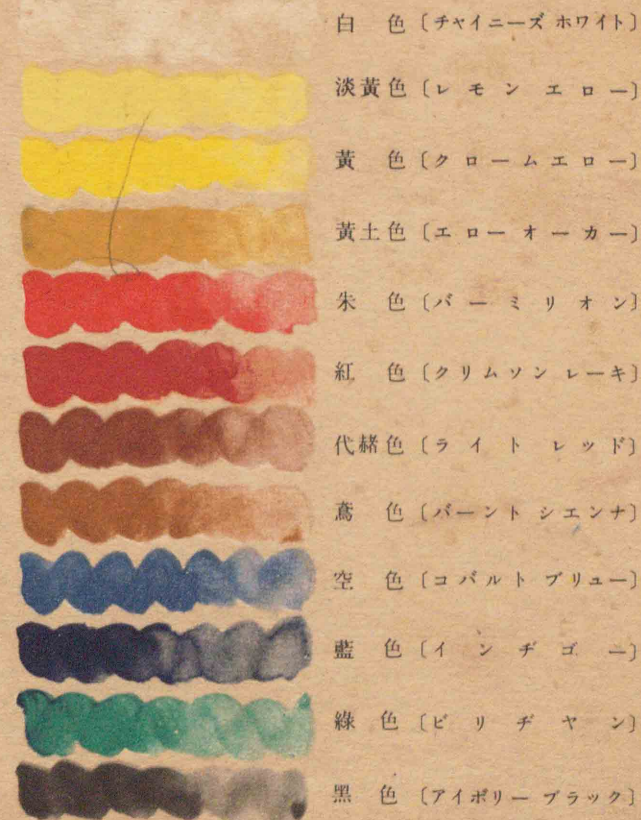 白色〔チャイニーズ ホワイト〕
淡黃色〔レモンエロー〕
黃色〔クロームエロー〕
黃土色〔エローオーカー〕
朱色〔バーミリオン〕
紅色〔クリムソンレーキ〕
代赭色〔ライト レッド〕
鳶色〔バーント シエンナ〕
空色〔コバルト ブリュー〕
藍色〔インヂゴー〕
綠色〔ビリヂヤン〕
黑色〔アイボリー ブラック〕